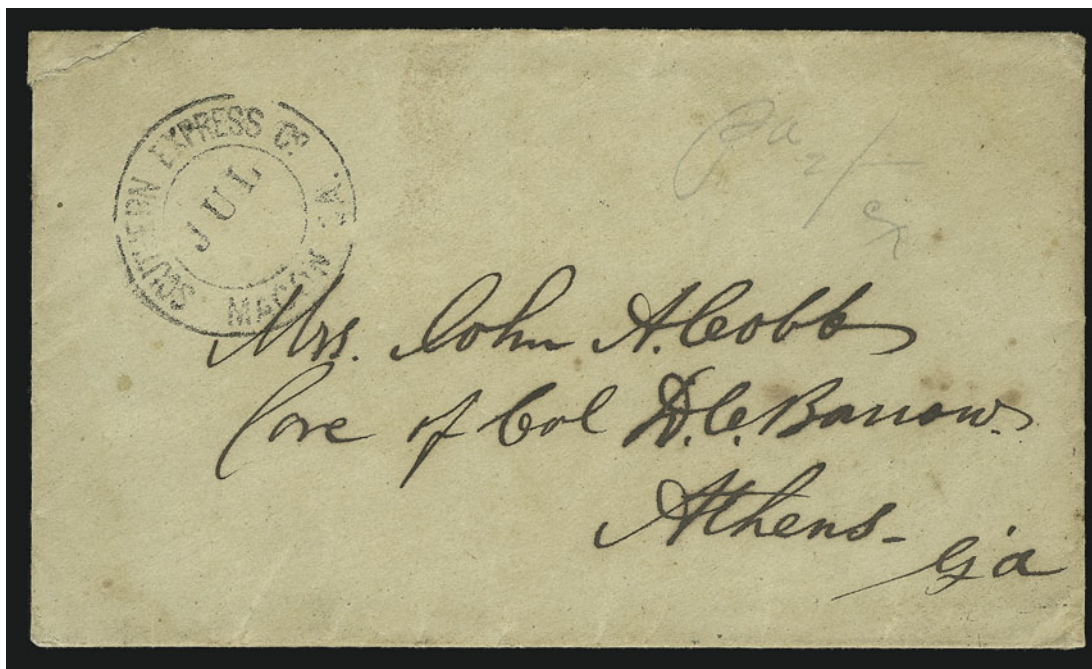 SOUTHERN EXPRESS Co.
MACON GA.
JUL
Mrs. John A. Cobb
Care of Col D. C. Barrow.
Athens-
Ga